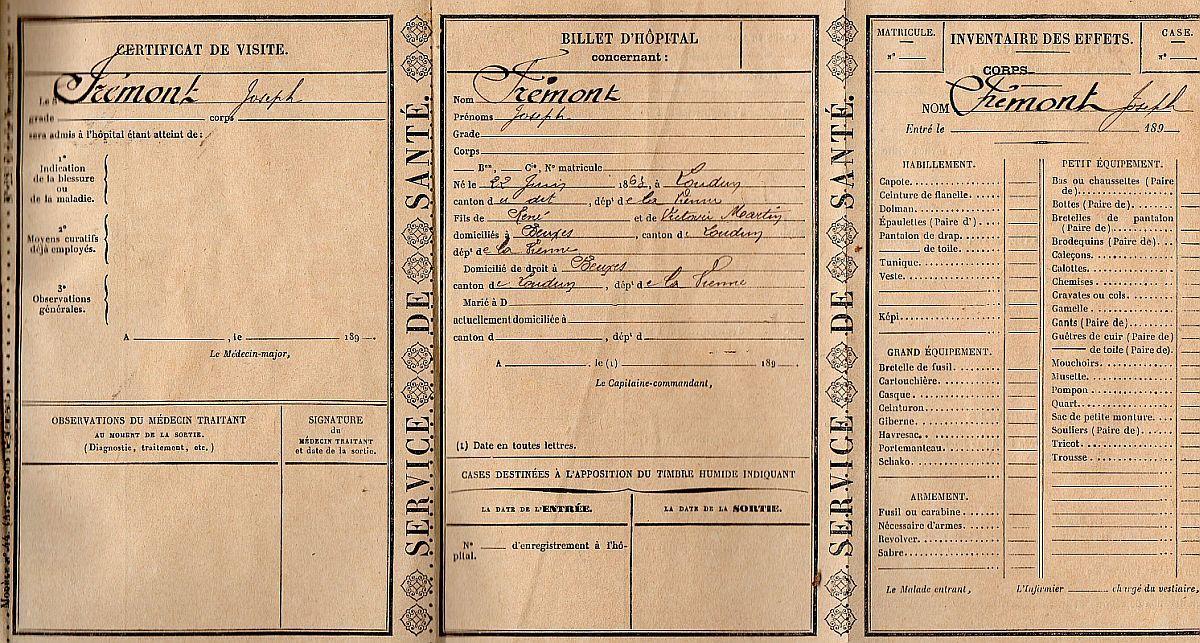 CERTIFICAT DE VISITE.
Le S
Frémont Joseph
grade corps
sera admis à l'hôpital étant atteint de :
1°
Indication
de la blessure
ou
de la maladie.
2°
Moyens curatifs
déjà employés.
3°
Observations
générales.
A , le 189 .
Le Médecin-major,
OBSERVATIONS DU MÉDECIN TRAITANT
AU MOMENT DE LA SORTIE.
(Diagnostic, traitement, etc.)
SIGNATURE
du
MÉDECIN TRAITANT
et date de la sortie.
SERVICE DE SANTÉ.
BILLET D'HÔPITAL
concernant :
Nom Frémont
Prénoms Joseph
Grade
Corps
Bon, Cie, N° matricule
Né le 22 Juin 186 , à Loudun
canton du dit , dépt de la Vienne
Fils de René et de Victoire Martin
domiciliés à Beuxes , canton de Loudun
dépt de la Vienne
Domicilié de droit à Beuxes
canton de Loudun , dépt de la Vienne
Marié à D
actuellement domiciliée à
canton d , dépt d
A , le (1) 189 .
Le Capitaine-commandant,
(1) Date en toutes lettres.
CASES DESTINÉES À L'APPOSITION DU TIMBRE HUMIDE INDIQUANT
LA DATE DE L'ENTRÉE.
LA DATE DE LA SORTIE.
N° d'enregistrement à l'hô-
pital.
SERVICE DE SANTÉ.
MATRICULE.
N°
INVENTAIRE DES EFFETS.
CASE.
N°
CORPS
NOM Frémont Joseph
Entré le 189
HABILLEMENT.
Capote.
Ceinture de flanelle
Dolman.
Épaulettes (Paire d')
Pantalon de drap.
de toile.
Tunique.
Veste.
Képi
GRAND ÉQUIPEMENT.
Bretelle de fusil.
Cartouchière.
Casque
Ceinturon
Giberne.
Havresac.
Portemanteau.
Schako.
ARMEMENT.
Fusil ou carabine.
Nécessaire d'armes.
Revolver.
Sabre.
PETIT ÉQUIPEMENT.
Bas ou chaussettes (Paire
de)
Bottes (Paire de)
Bretelles de pantalon
(Paire de)
Brodequins (Paire de)
Caleçons.
Calottes.
Chemises.
Cravates ou cols.
Gamelle
Gants (Paire de)
Guêtres de cuir (Paire de)
de toile (Paire de).
Mouchoirs.
Musette.
Pompon
Quart.
Sac de petite monture.
Souliers (Paire de)
Tricot.
Trousse
Le Malade entrant,
L'Infirmier chargé du vestiaire,